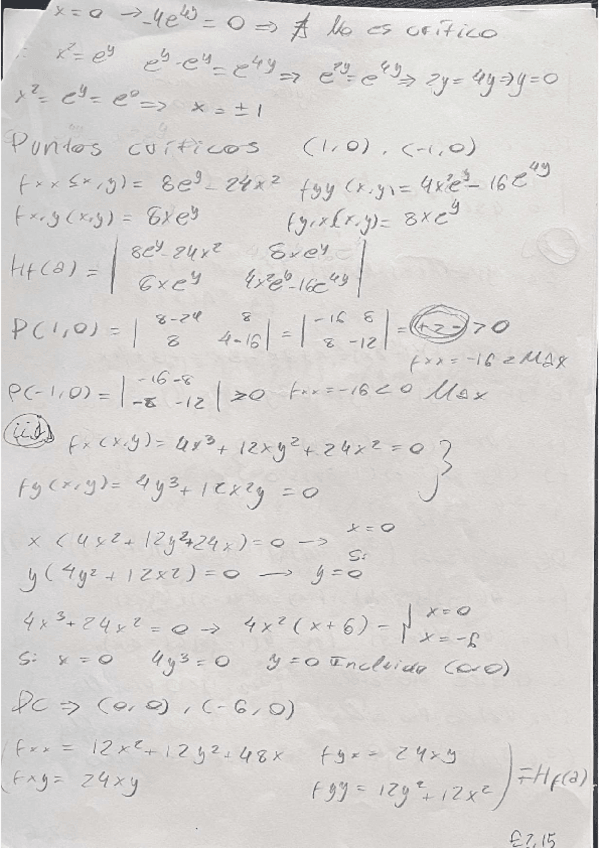 x=0 → -4e^{4y} = 0 ⇒ ∄ No es crítico
x² = e^y e^y·e^y = e^{4y} ⇒ e^{2y} = e^{4y} ⇒ 2y = 4y ⇒ y=0
x² = e^y = e^0 ⇒ x = ±1
Puntos críticos (1,0), (-1,0)
fxx(x,y) = 8e^y - 24x² fyy(x,y) = 4x²e^y - 16e^{4y}
fx,y(x,y) = 8xe^y fy,x(x,y) = 8xe^y
Hf(a) = | 8e^y - 24x² 8xe^y |
| 8xe^y 4x²e^y - 16e^{4y} |
P(1,0) = | 8-24 8 | = | -16 8 | = > 0
| 8 4-16 | | 8 -12 |
fxx = -16 < Máx
P(-1,0) = | -16 -8 | > 0 fxx = -16 < 0 Máx
| -8 -12 |
fx(x,y) = 4x³ + 12xy² + 24x² = 0 }
fy(x,y) = 4y³ + 12x²y = 0
x(4x² + 12y² + 24x) = 0 → x=0
Si
y(4y² + 12x²) = 0 → y=0
4x³ + 24x² = 0 → 4x²(x+6) = { x=0
x=-6
Si x=0 4y³=0 y=0 Incluido (0,0)
PC ⇒ (0,0), (-6,0)
( fxx = 12x² + 12y² + 48x fyx = 24xy )
( fxy = 24xy fyy = 12y² + 12x² ) = Hf(a)
E2.15